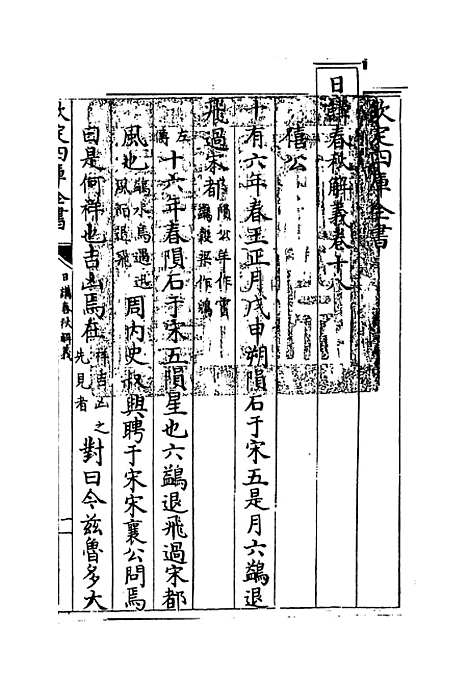 欽定四庫全書
日講春秋解義卷十八
僖公
十有六年春王正月戊申朔隕石于宋五是月六鷁退
飛過宋都隕公羊作霣鷁穀梁作鶂
左傳十六年春隕石于宋五隕星也六鷁退飛過宋都
風也鷁水鳥遇迅風而退飛周内史叔興聘于宋宋襄公問焉
曰是何祥也吉凶焉在祥吉凶之先見者對曰今兹魯多大
欽定四庫全書
日講春秋解義
一